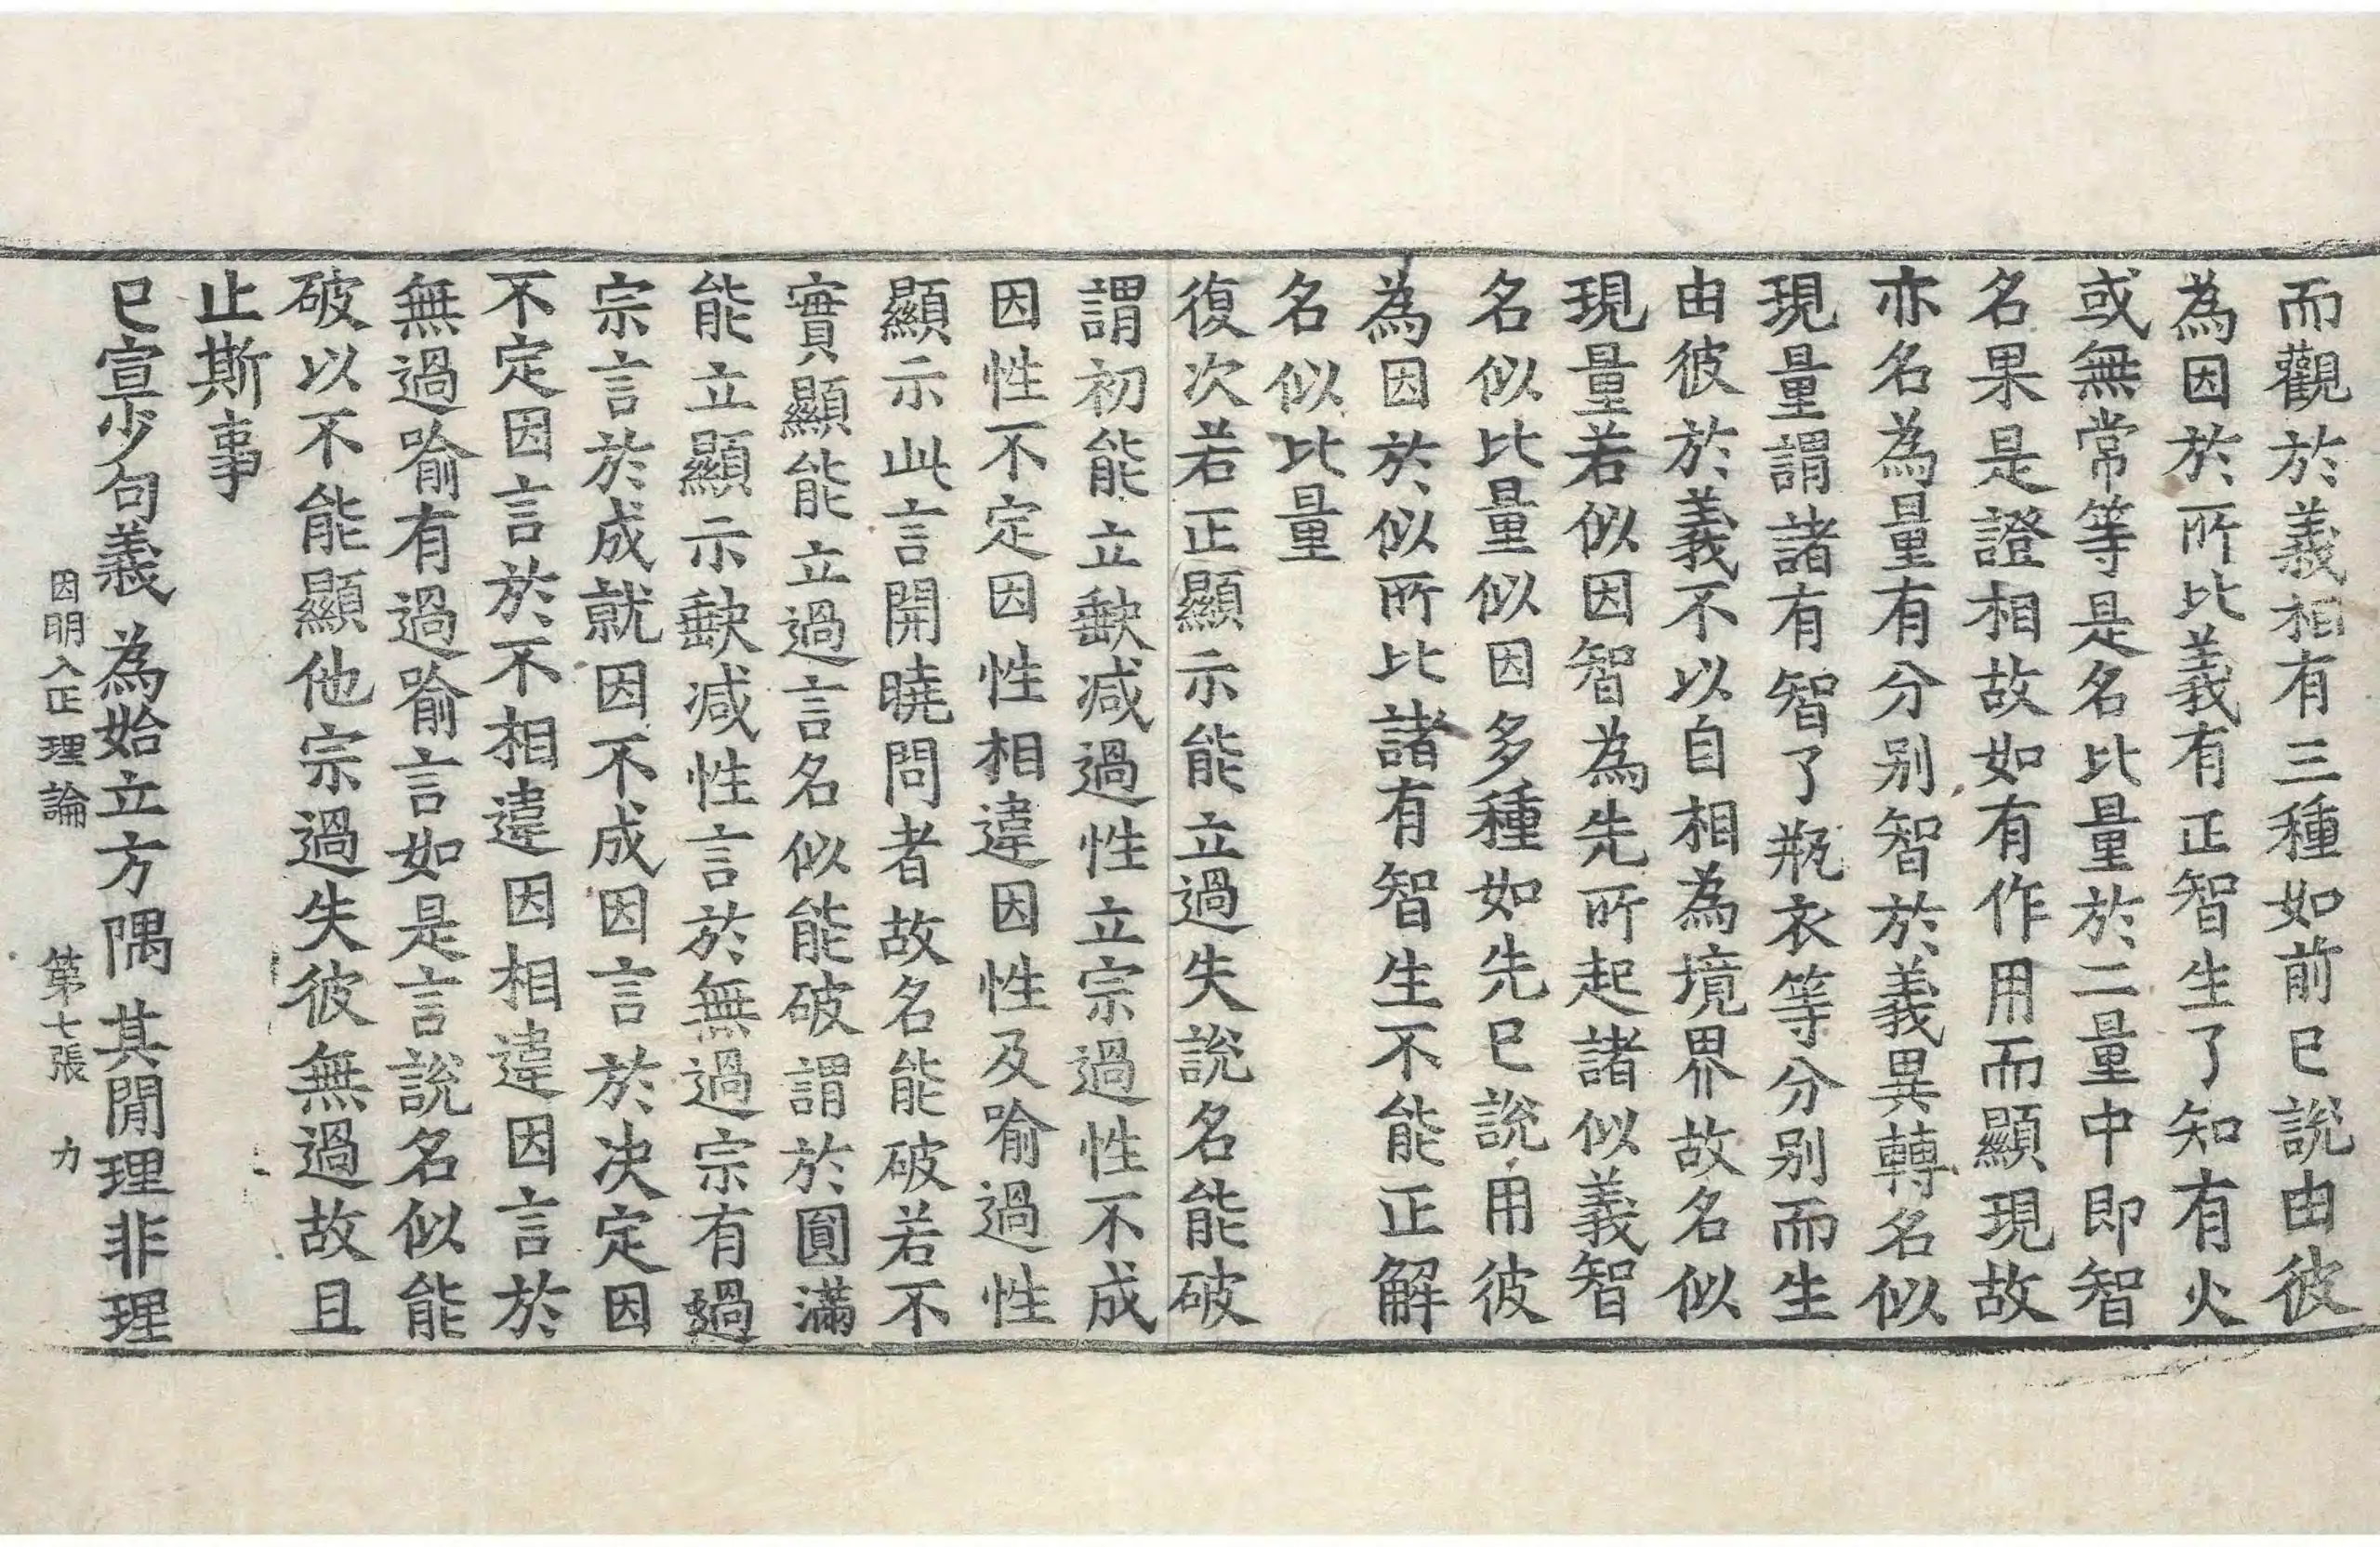 而觀於義相有三種如前已說由彼
為因於所比義有正智生了知有火
或無常等是名比量於二量中即智
名果是證相故如有作用而顯現故
亦名為量有分別智於義異轉名似
現量謂諸有智了瓶衣等分別而生
由彼於義不以自相為境界故名似
現量若似因智為先所起諸似義智
名似比量似因多種如先已說用彼
為因於似所比諸有智生不能正解
名似比量
復次若正顯示能立過失說名能破
謂初能立缺减過性立宗過性不成
因性不定因性相違因性及喻過性
顯示此言開曉問者故名能破若不
實顯能立過言名似能破謂於圓滿
能立顯示缺减性言於無過宗有過
宗言於成就因不成因言於决定因
不定因言於不相違因相違因言於
無過喻有過喻言如是言說名似能
破以不能顯他宗過失彼無過故且
止斯事
已宣少句義 為始立方隅 其閒理非理
因明入正理論 第七張 力